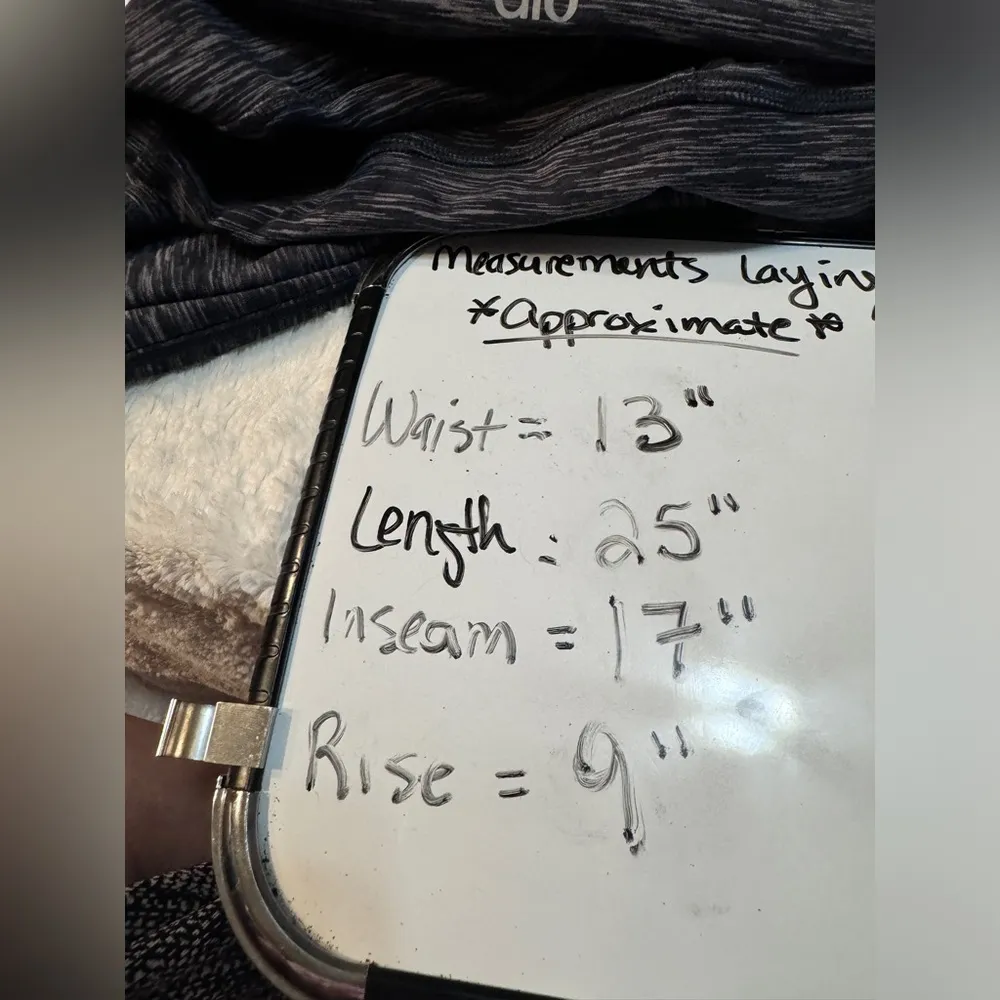 alo
Measurements Laying
*Approximate*
Waist = 13"
Length = 25"
Inseam = 17"
Rise = 9"